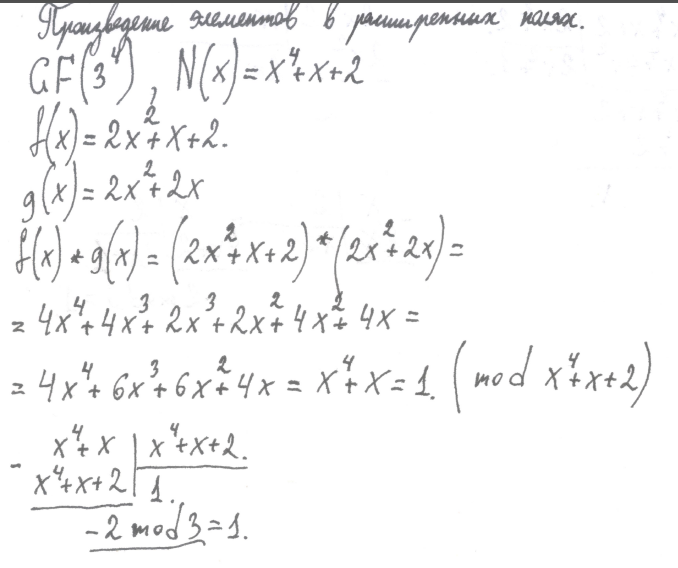 Произведение элементов в расширенных полях.
GF(3⁴), N(x)=x⁴+x+2
f(x)=2x²+x+2.
g(x)=2x²+2x
f(x)*g(x)=(2x²+x+2)*(2x²+2x)=
=4x⁴+4x³+2x³+2x²+4x²+4x=
=4x⁴+6x³+6x²+4x=x⁴+x=1. (mod x⁴+x+2)
- x⁴+x | x⁴+x+2.
x⁴+x+2 | 1.
-2 mod 3=1.